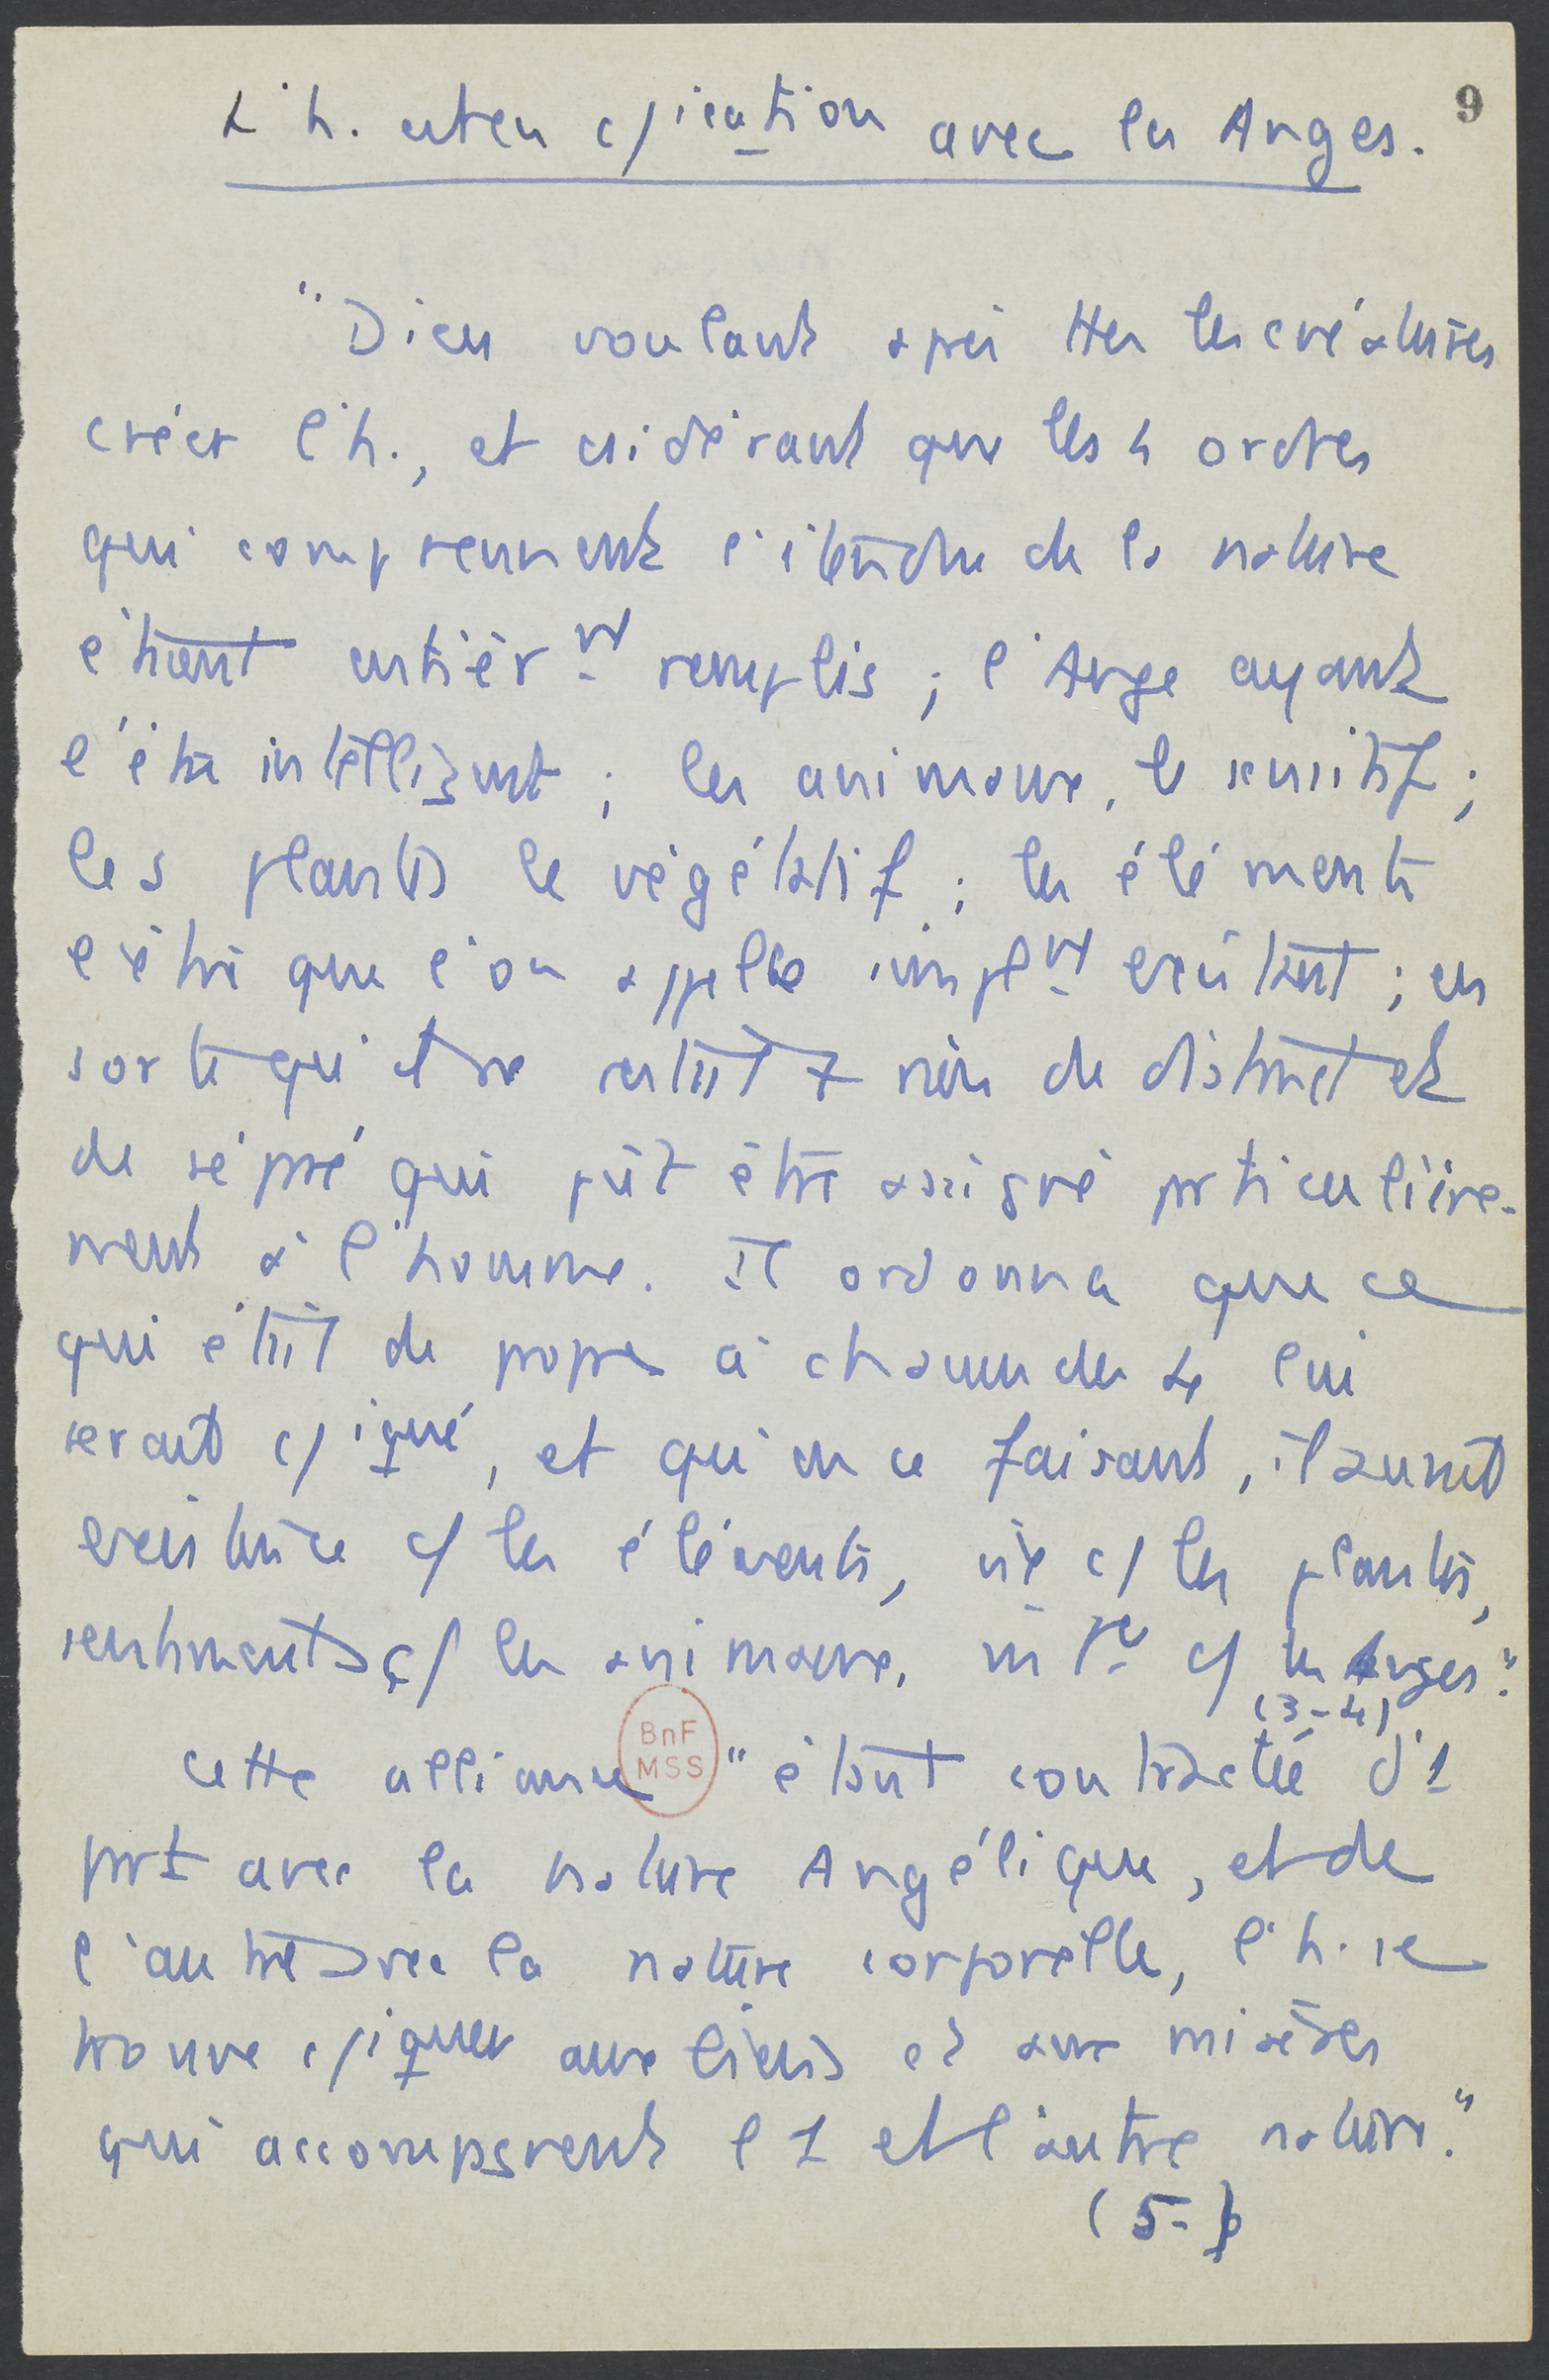 9
L'h. est en c/ication avec les Anges.
"Dieu voulant après ttes les créatures
créer l'h., et csidérant que les 4 ordres
qui comprennent l'étendue de la nature
étant entièrmt remplis ; l'Ange ayant
l'être intelligent ; les animaux, le sensitif ;
les plantes le végétatif ; les éléments
l'être que l'on appelle simplmt existant ; en
sorte qu'il ne restait + rien de distinct et
de séparé qui pût être assigné particulière-
ment à l'homme. Il ordonna que ce
qui était de propre à chacun des 4 lui
serait c/iqué, et qu'en ce faisant, il aurait
existence c/ les éléments, vie c/ les plantes,
sentiment c/ les animaux, c/ les Anges."
(3-4)
Cette alliance "étant contractée d'1
part avec la nature Angélique, et de
l'autre avec la nature corporelle, l'h. se
trouve c/iquer aux biens et aux misères
qui accompagnent l'1 et l'autre nature."
(5-
BnF
MSS